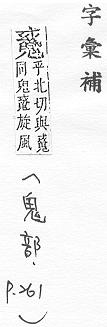 字彙補
平北切與
同鬼旋風
(鬼部.
p.261)